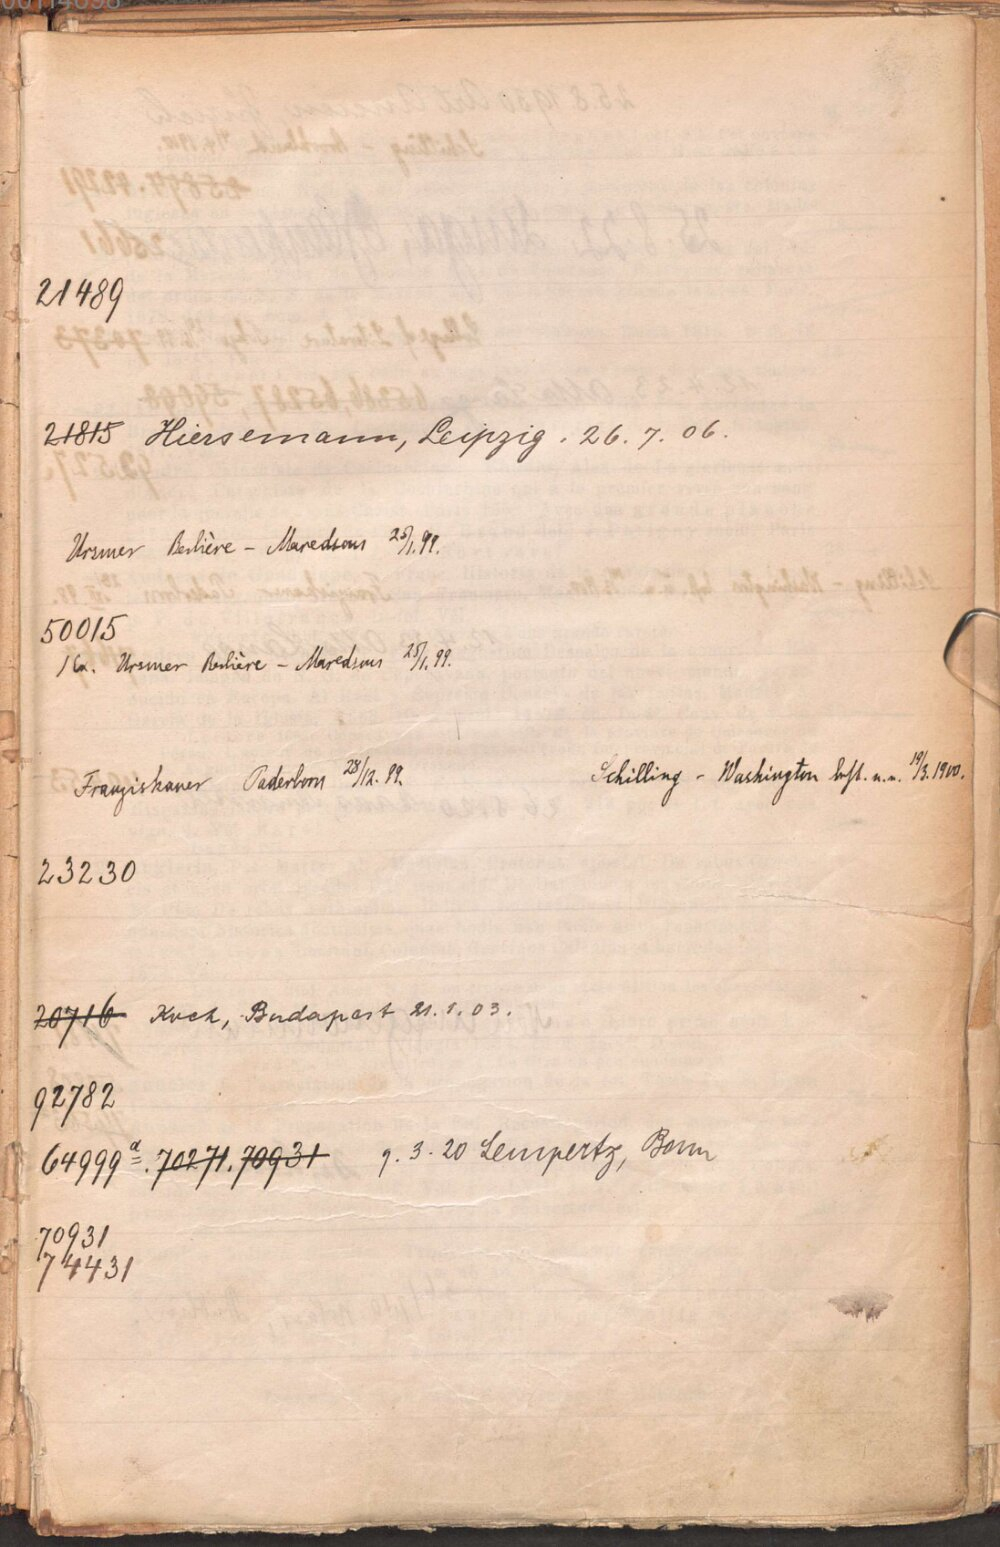 00114698
21489
21815 Hiersemann, Leipzig. 26. 7. 06.
Ursmer Berlière – Maredsous 25/1. 99.
50015
1 Ex. Ursmer Berlière – Maredsous 25/1. 99.
Franziskaner Paderborn 28/12. 99. Schilling – Washington best. u. u. 19/3. 1900.
23230
20716 Koch, Budapest 21. 1. 03.
92782
64999 a. 70271. 70931 9. 3. 20 Lempertz, Bonn
70931
74431